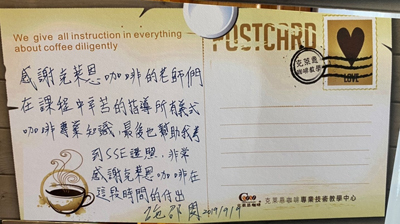 We give all instruction in everything
about coffee diligently
POSTCARD
克萊恩
咖啡教學
LOVE
感謝克萊恩咖啡的老師們
在課程中辛苦的指導所有義式
咖啡專業知識，最後也幫助我考
到SSE證照，非常
感謝克萊恩咖啡在
這段時間的付出
2019/9/9
克萊恩咖啡專業技術教學中心